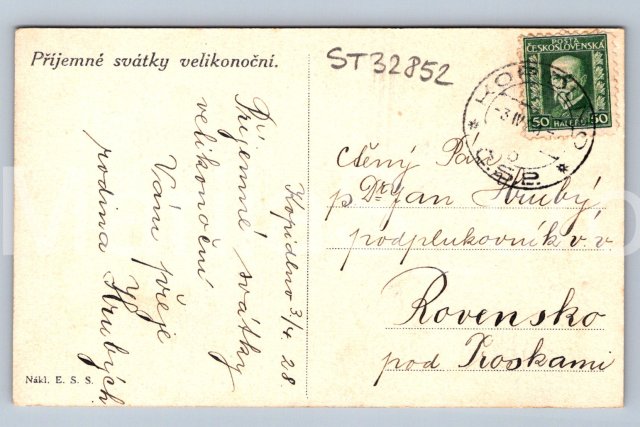 Příjemné svátky velikonoční.
ST32852
POŠTA
ČESKOSLOVENSKÁ
50 HALÉŘŮ 50
Kopidlno 3/4 28
Příjemné svátky
velikonoční
Vám přeje
rodina Hrubých
Ctěný Pán
p. Dr Jan Hrubý,
podplukovník v. v
Rovensko
pod Troskami
Nákl. E. S. S.